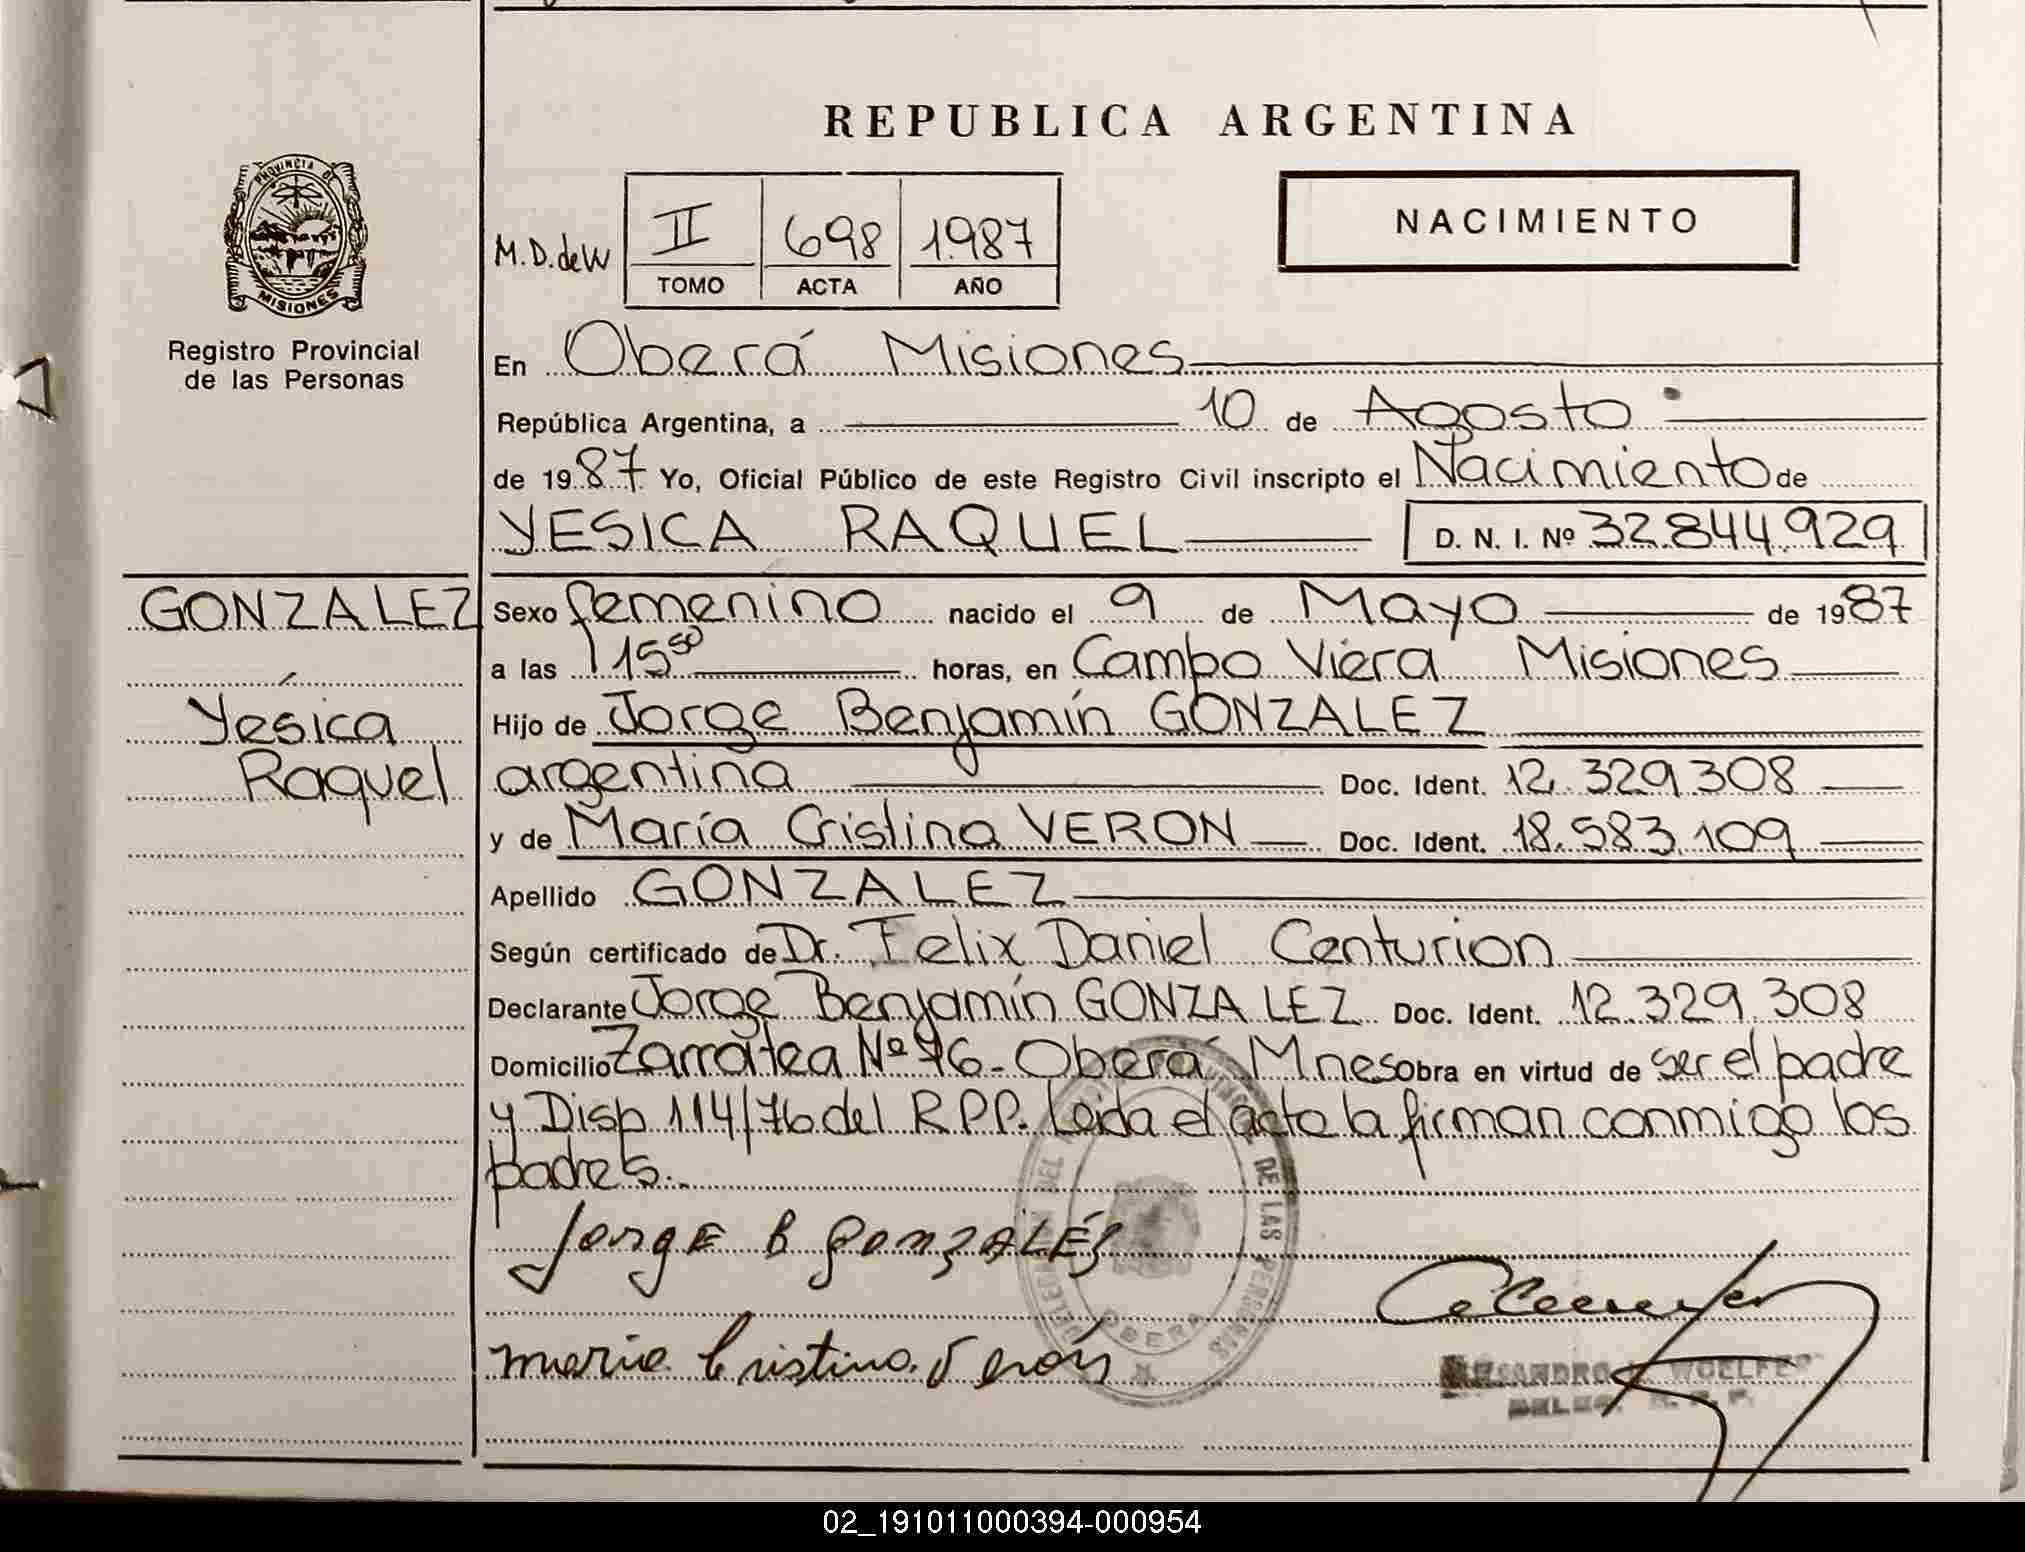 REPUBLICA ARGENTINA
PROVINCIA DE
MISIONES
Registro Provincial
de las Personas
M.D.deW
II 698 1.987
TOMO ACTA AÑO
NACIMIENTO
En Oberá Misiones
República Argentina, a 10 de Agosto
de 1987 Yo, Oficial Público de este Registro Civil inscripto el Nacimiento de
YESICA RAQUEL D. N. I. Nº 32.844.929
GONZALEZ
Yésica
Raquel
Sexo femenino nacido el 9 de Mayo de 1987
a las 15 50 horas, en Campo Viera Misiones
Hijo de Jorge Benjamín GONZALEZ
argentina Doc. Ident. 12.329.308
y de María Cristina VERON Doc. Ident. 18.583.109
Apellido GONZALEZ
Según certificado de Dr. Felix Daniel Centurion
Declarante Jorge Benjamín GONZALEZ Doc. Ident. 12.329.308
Domicilio Zarratea Nº 76- Oberá Mnes obra en virtud de ser el padre
y Disp 114/76 del R.P.P. Leida el acta la firman conmigo los
padres.
Jorge B Gonzalés
DE LAS PERSONAS
OBERA
Maria Cristina Verón
WOELFER
02_191011000394-000954